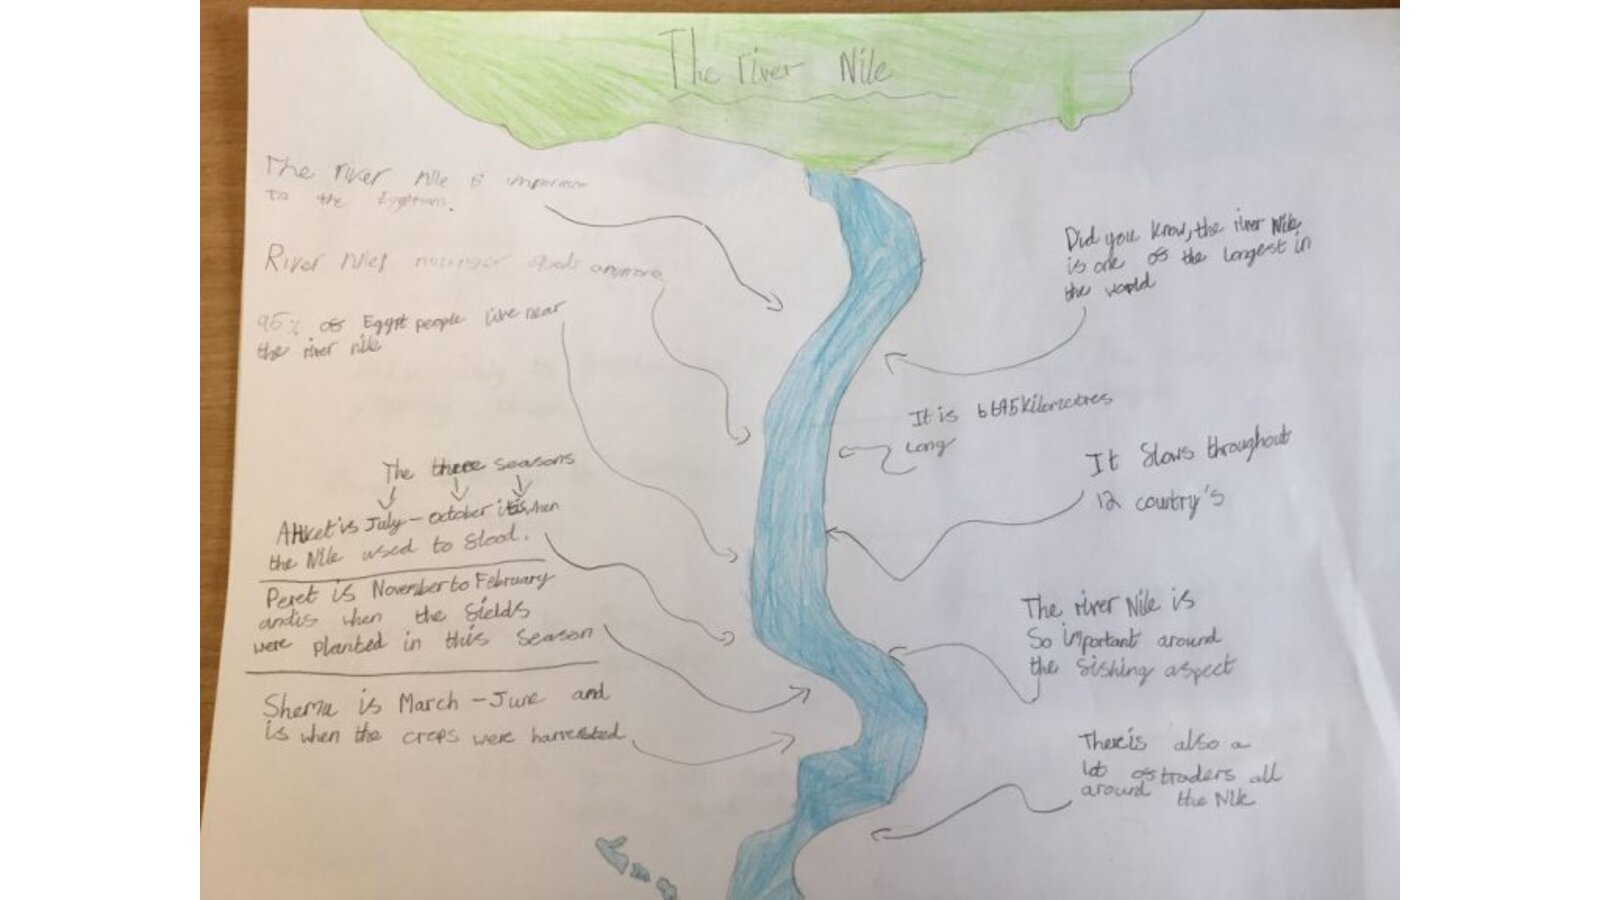 The river Nile
The river nile is important
to the Egyptian.
River niles nolonger floods anymore
95% of Egypt people live near
the river nile
The three seasons
Ahket is July - october itis when
the Nile used to flood.
Peret is November to February
andis when the fields
were planted in this season
Shemu is March - June and
is when the crops were harvested
Did you know, the river Nile
is one of the longest in
the world
It is 6695 kilometres
long
It flows throughout
12 country's
The river Nile is
so important around
the fishing aspect
Thereis also a
lot of traders all
around the Nile